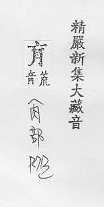 精嚴新集大藏音
肓
音荒
肉部